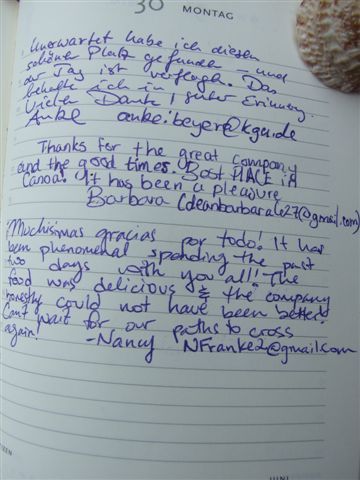 30 MONTAG
Unerwartet habe ich diesen
schönen Platz gefunden – und
der Tag ist verflogh. Das
behalte ich in
Vielen Dank! guter Erinnerung.
Anke anke.beyer@kgu.de
Thanks for the great company
and the good times. Best PLACE in
Canoa! It has been a pleasure
Barbara (deanbarbara627@gmail.com)
Muchisimas gracias por todo! It has
been phenomenal spending the past
two days with you all! The
food was delicious & the company
honestly could not have been better!
Can't wait for our paths to cross
again! -Nancy NFranke2@gmail.com
JUNI